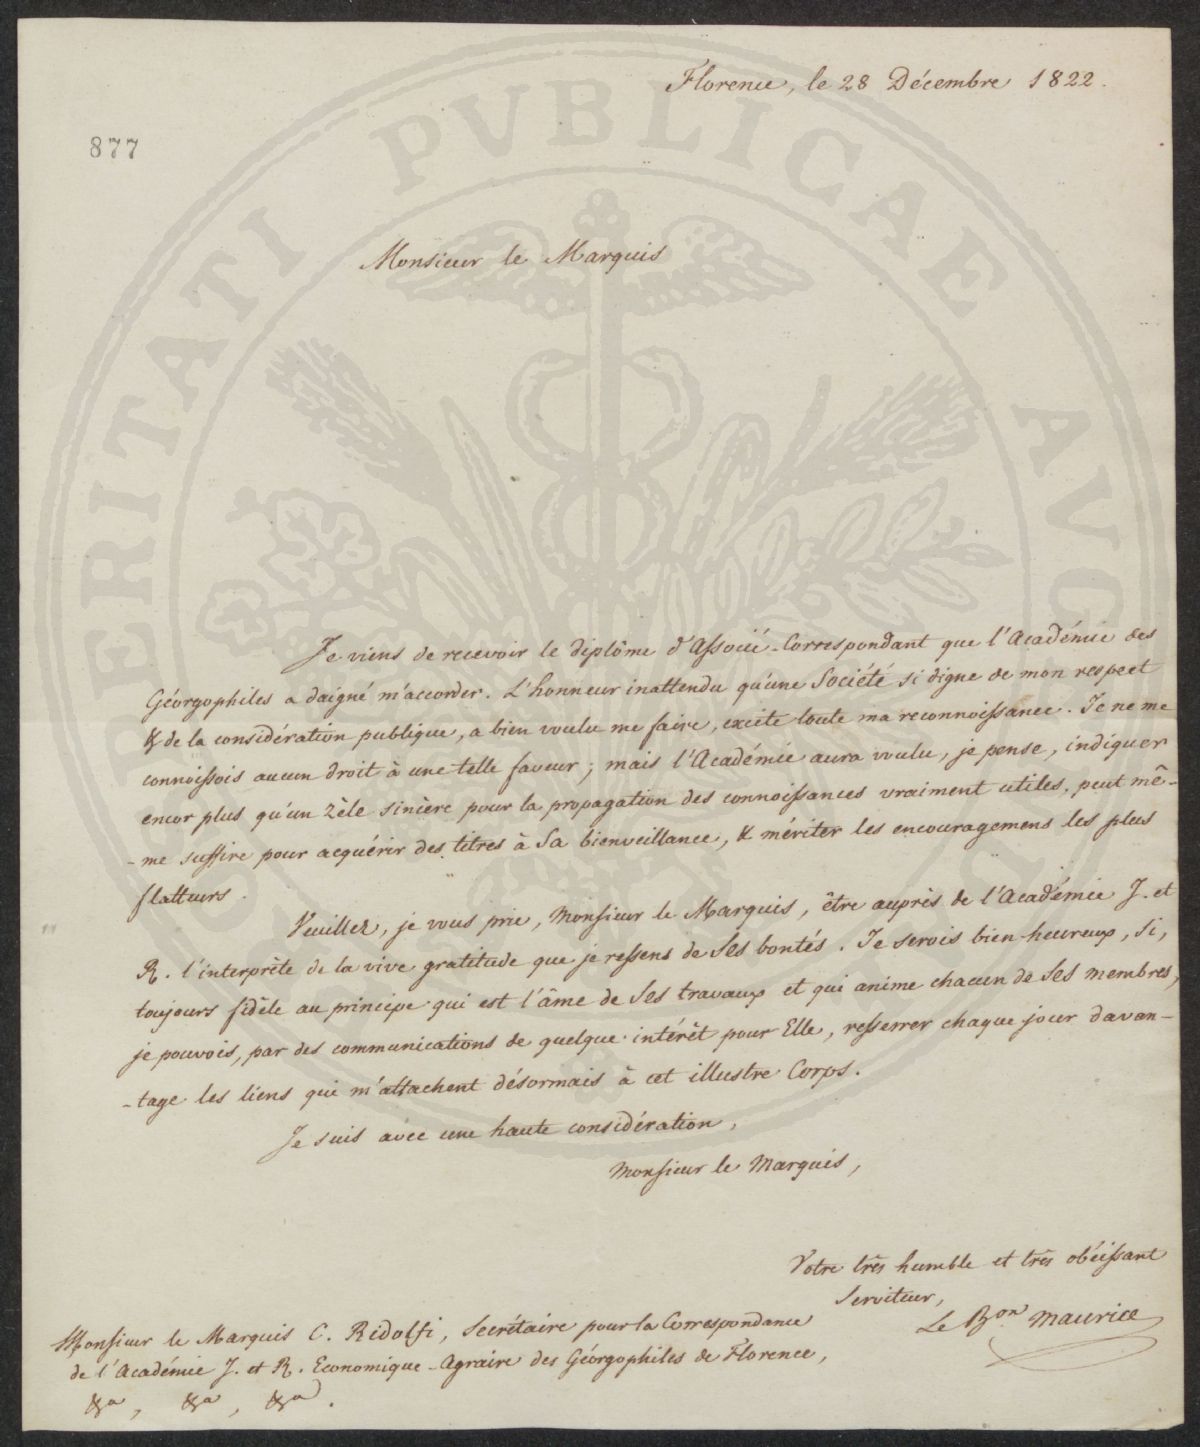 Florence, le 28 Décembre 1822.
877
Monsieur le Marquis
Je viens de recevoir le diplôme d'Associé-Correspondant que l'Académie des
Géorgophiles a daigné m'accorder. L'honneur inattendu qu'une Société si digne de mon respect
& de la considération publique, a bien voulu me faire, excite toute ma reconnoissance. Je ne me
connoissois aucun droit à une telle faveur; mais l'Académie aura voulu, je pense, indiquer
encor plus qu'un zèle sincère pour la propagation des connoissances vraiment utiles, peut mê-
-me suffire pour acquérir des titres à Sa bienveillance, & mériter les encouragemens les plus
flatteurs.
Veuillez, je vous prie, Monsieur le Marquis, être auprès de l'Académie J. et
R. l'interprète de la vive gratitude que je ressens de Ses bontés. Je serois bien heureux, si,
toujours fidèle au principe qui est l'âme de Ses travaux et qui anime chacun de Ses membres,
je pouvois, par des communications de quelque intérêt pour Elle, resserrer chaque jour davan-
-tage les liens qui m'attachent désormais à cet illustre Corps.
Je suis avec une haute considération,
Monsieur le Marquis,
Votre très humble et très obéissant
Serviteur,
Le Bon Maurice
Monsieur le Marquis C. Ridolfi, Secrétaire pour la Correspondance
de l'Académie J. et R. Economique-Agraire des Géorgophiles de Florence,
&a, &a, &a.
PROSPERITATI PVBLICAE AVGENDAE